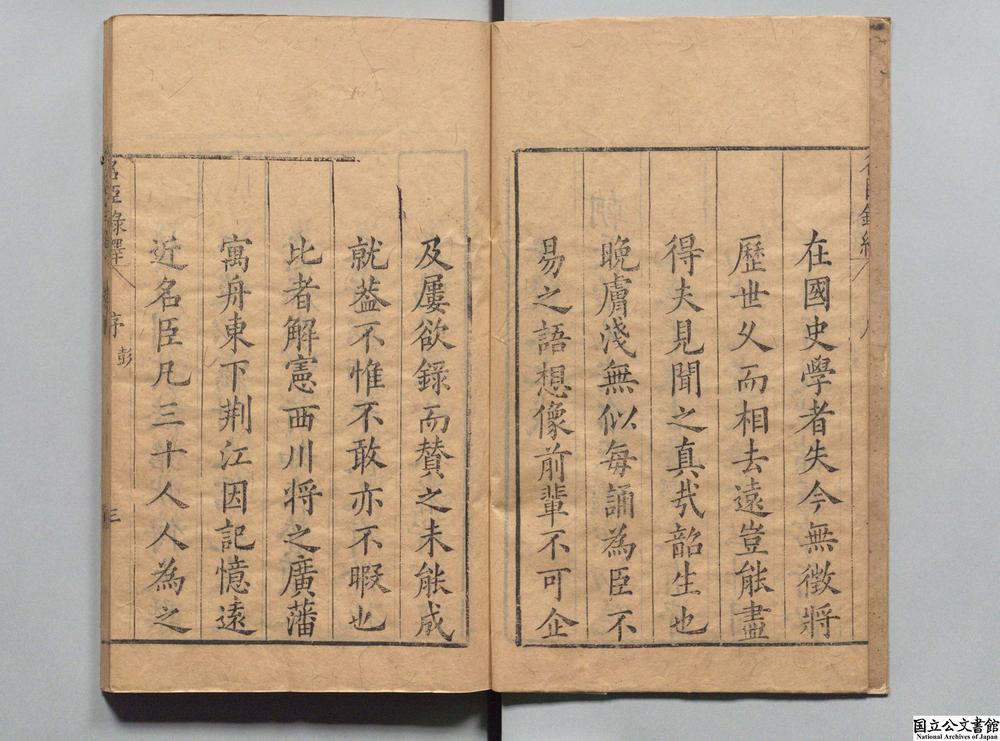 在國史學者失今無徵將
歷世乆而相去遠豈能盡
得夫見聞之真㦲韶生也
晚膚淺無似每誦為臣不
易之語想像前輩不可企
及屢欲錄而贊之未能成
就葢不惟不敢亦不暇也
比者解憲西川將之廣藩
寓舟東下荆江因記憶逺
近名臣凡三十人人為之
名臣錄繹
序
彭
三
国立公文書館
National Archives of Japan